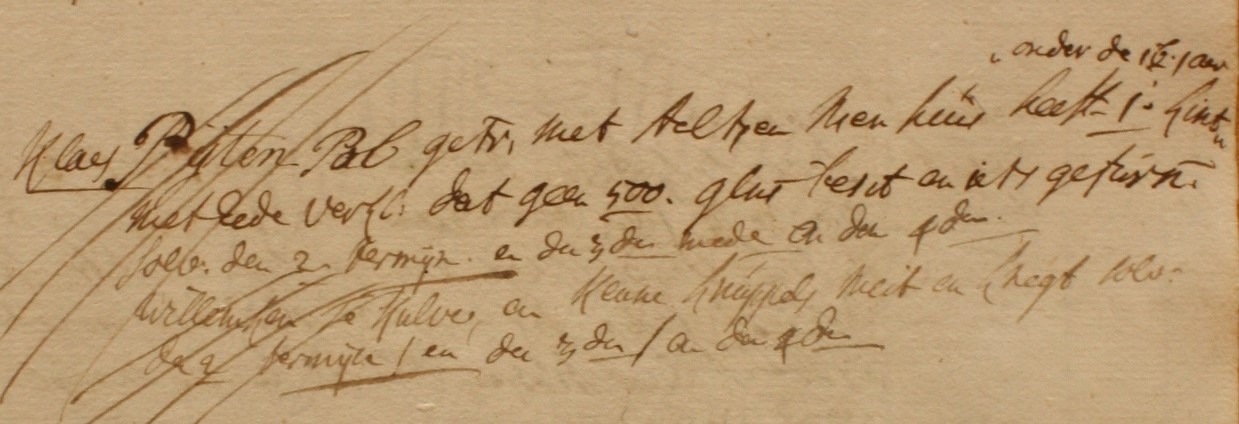 onder de 16 jaar
Klaes Pijlen Pol getr. met Aeltjen Men huis heeft 1. kint
met Eede verkl. dat geen 500. glns besit en iets gefurn.
solv. den 2. termijn en de 3 den mede en den 4 den
Willemken te Kulve, en Kenne Knüppels meit en knegt solv.
de 2 termijn / en de 3 den / en den 4 den